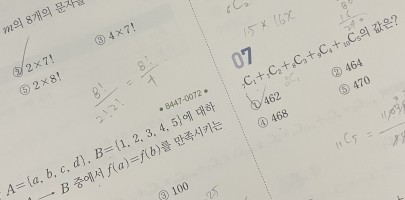 m의 8개의 문자를
③ 4×7!
② 2×7!
⑤ 2×8!
8!/2!2! = 8!/4
• 8447-0072 •
A={a, b, c, d}, B={1, 2, 3, 4, 5}에 대하
B 중에서 f(a)=f(b)를 만족시키는
③ 100
25
15×16×
07
₇C₁+₇C₂+₈C₃+₉C₄+₁₀C₅의 값은?
① 462
② 464
④ 468
⑤ 470
₁₁C₅ =